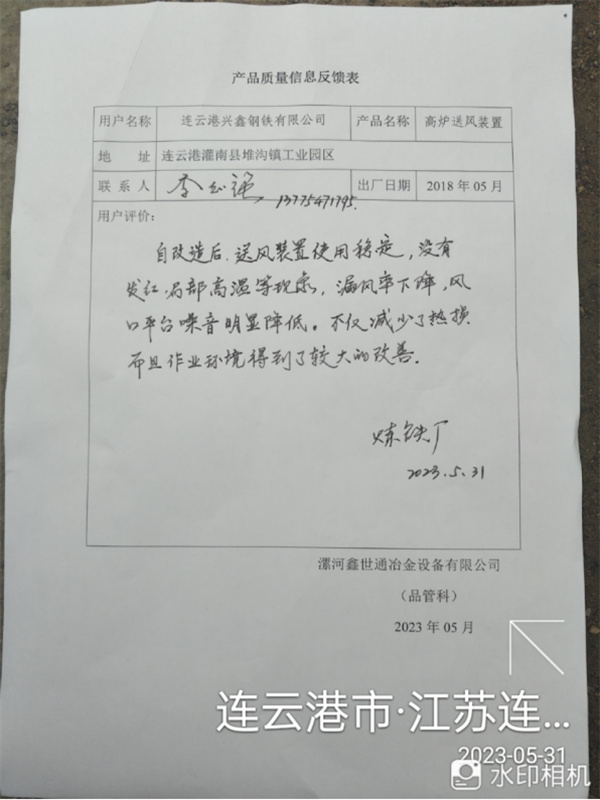 产品质量信息反馈表
用户名称 连云港兴鑫钢铁有限公司 产品名称 高炉送风装置
地 址 连云港灌南县堆沟镇工业园区
联系人 李 强 13775471795. 出厂日期 2018年05月
用户评价:
自改造后.送风装置使用稳定,没有
发红,局部高温等现象,漏风率下降,风
口平台噪音明显降低。不仅减少了热损
而且作业环境得到了较大的改善.
炼铁厂
2023.5.31
漯河鑫世通冶金设备有限公司
(品管科)
2023年05月
连云港市·江苏连...
2023-05-31
水印相机